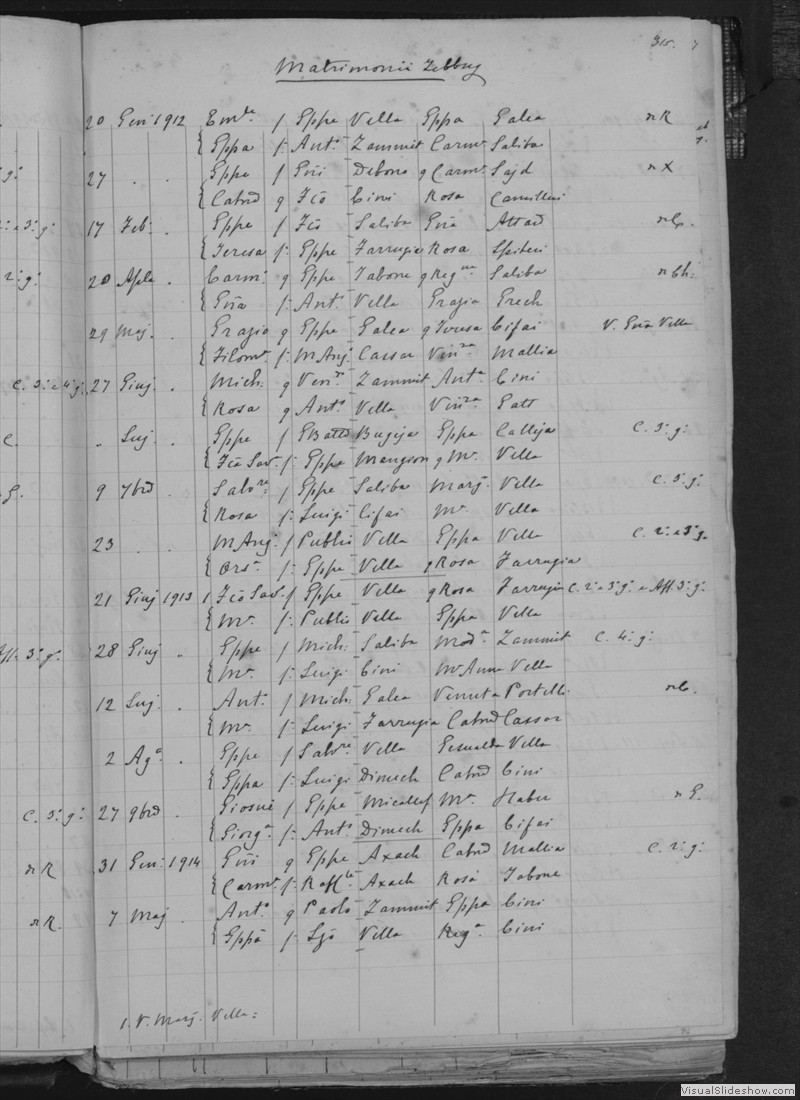 315. 7
Matrimonii Zebbug
20 Gen: 1912 Em.le f Eppe Vella Eppa Galea nR
{ Eppa f: Ant.o Zammit Carm.a Saliba
g: 27 . . Eppe f Gio Debono q Carm.a Sajd nX
{ Catnd q Fco Cini Rosa Camilleri
2: e 3: g: 17 Feb: . Eppe f Fco Saliba Gna Attad
{ Teresa f: Eppe Farrugia Rosa Spiteri
2: g: 20 Aple . Carm: q Eppe Tabone q Reg.na Saliba nCh:
{ Gna f: Ant.o Vella Grazia Grech
29 Maj. . Grazio q Eppe Galea q Teresa Cifai V. Gna Vella
{ Filom.a f: M Anj: Cassar Vin.za Mallia
C. 3: e 4: g: 27 Giuj . Mich: q Ven.zo Zammit Ant.a Cini
{ Rosa q Ant.o Vella Vin.za Gatt
C. " Luj . Eppe f GBatta Bugeja Eppa Calleja C. 3: g:
{ Fco Sav. f: Eppe Mangion q M.a Vella
9 7brd . Salv.re f Eppe Saliba Marj. Vella C. 3: g:
{ Rosa f: Luigi Cifai M.a Vella
23 . . M Anj: f Public Vella Eppa Vella C. 2: e 3: g.
{ Ors.a f: Eppe Vella q Rosa Farrugia
21 Giuj 1913 1 Fco Sav. f Eppe Vella q Rosa Farrugia C. 2: e 3: g: e Aff. 3: g:
{ M.a f: Public Vella Eppa Vella
Aff. 3: g: 28 Giuj " Eppe f Mich: Saliba Mod.a Zammit C. 4: g:
{ M.a f: Luigi Cini M.a Anna Vella
12 Luj . Ant.o f Mich: Galea Venuta Portelli nC.
{ M.a f: Luigi Farrugia Catnd Cassar
2 Ag.o . Eppe f Salv.re Vella Gesualda Vella
{ Eppa f: Luigi Dimech Catnd Cini
C. 3: g: 27 9brd . Giosue f Eppe Micallef M.a Haber nG.
{ Giorg.a f: Ant.o Dimech Eppa Cifai
nR 31 Gen: 1914 Gio q Eppe Axach Catnd Mallia C. 2: g:
{ Carm.a f: Rafl.le Axach Rosa Tabone
nR. 7 Maj . Ant.o q Paolo Zammit Eppa Cini
{ Eppa f: Ljo Vella Reg.a Cini
1. V. Marj. Vella:
VisualSlideshow.com